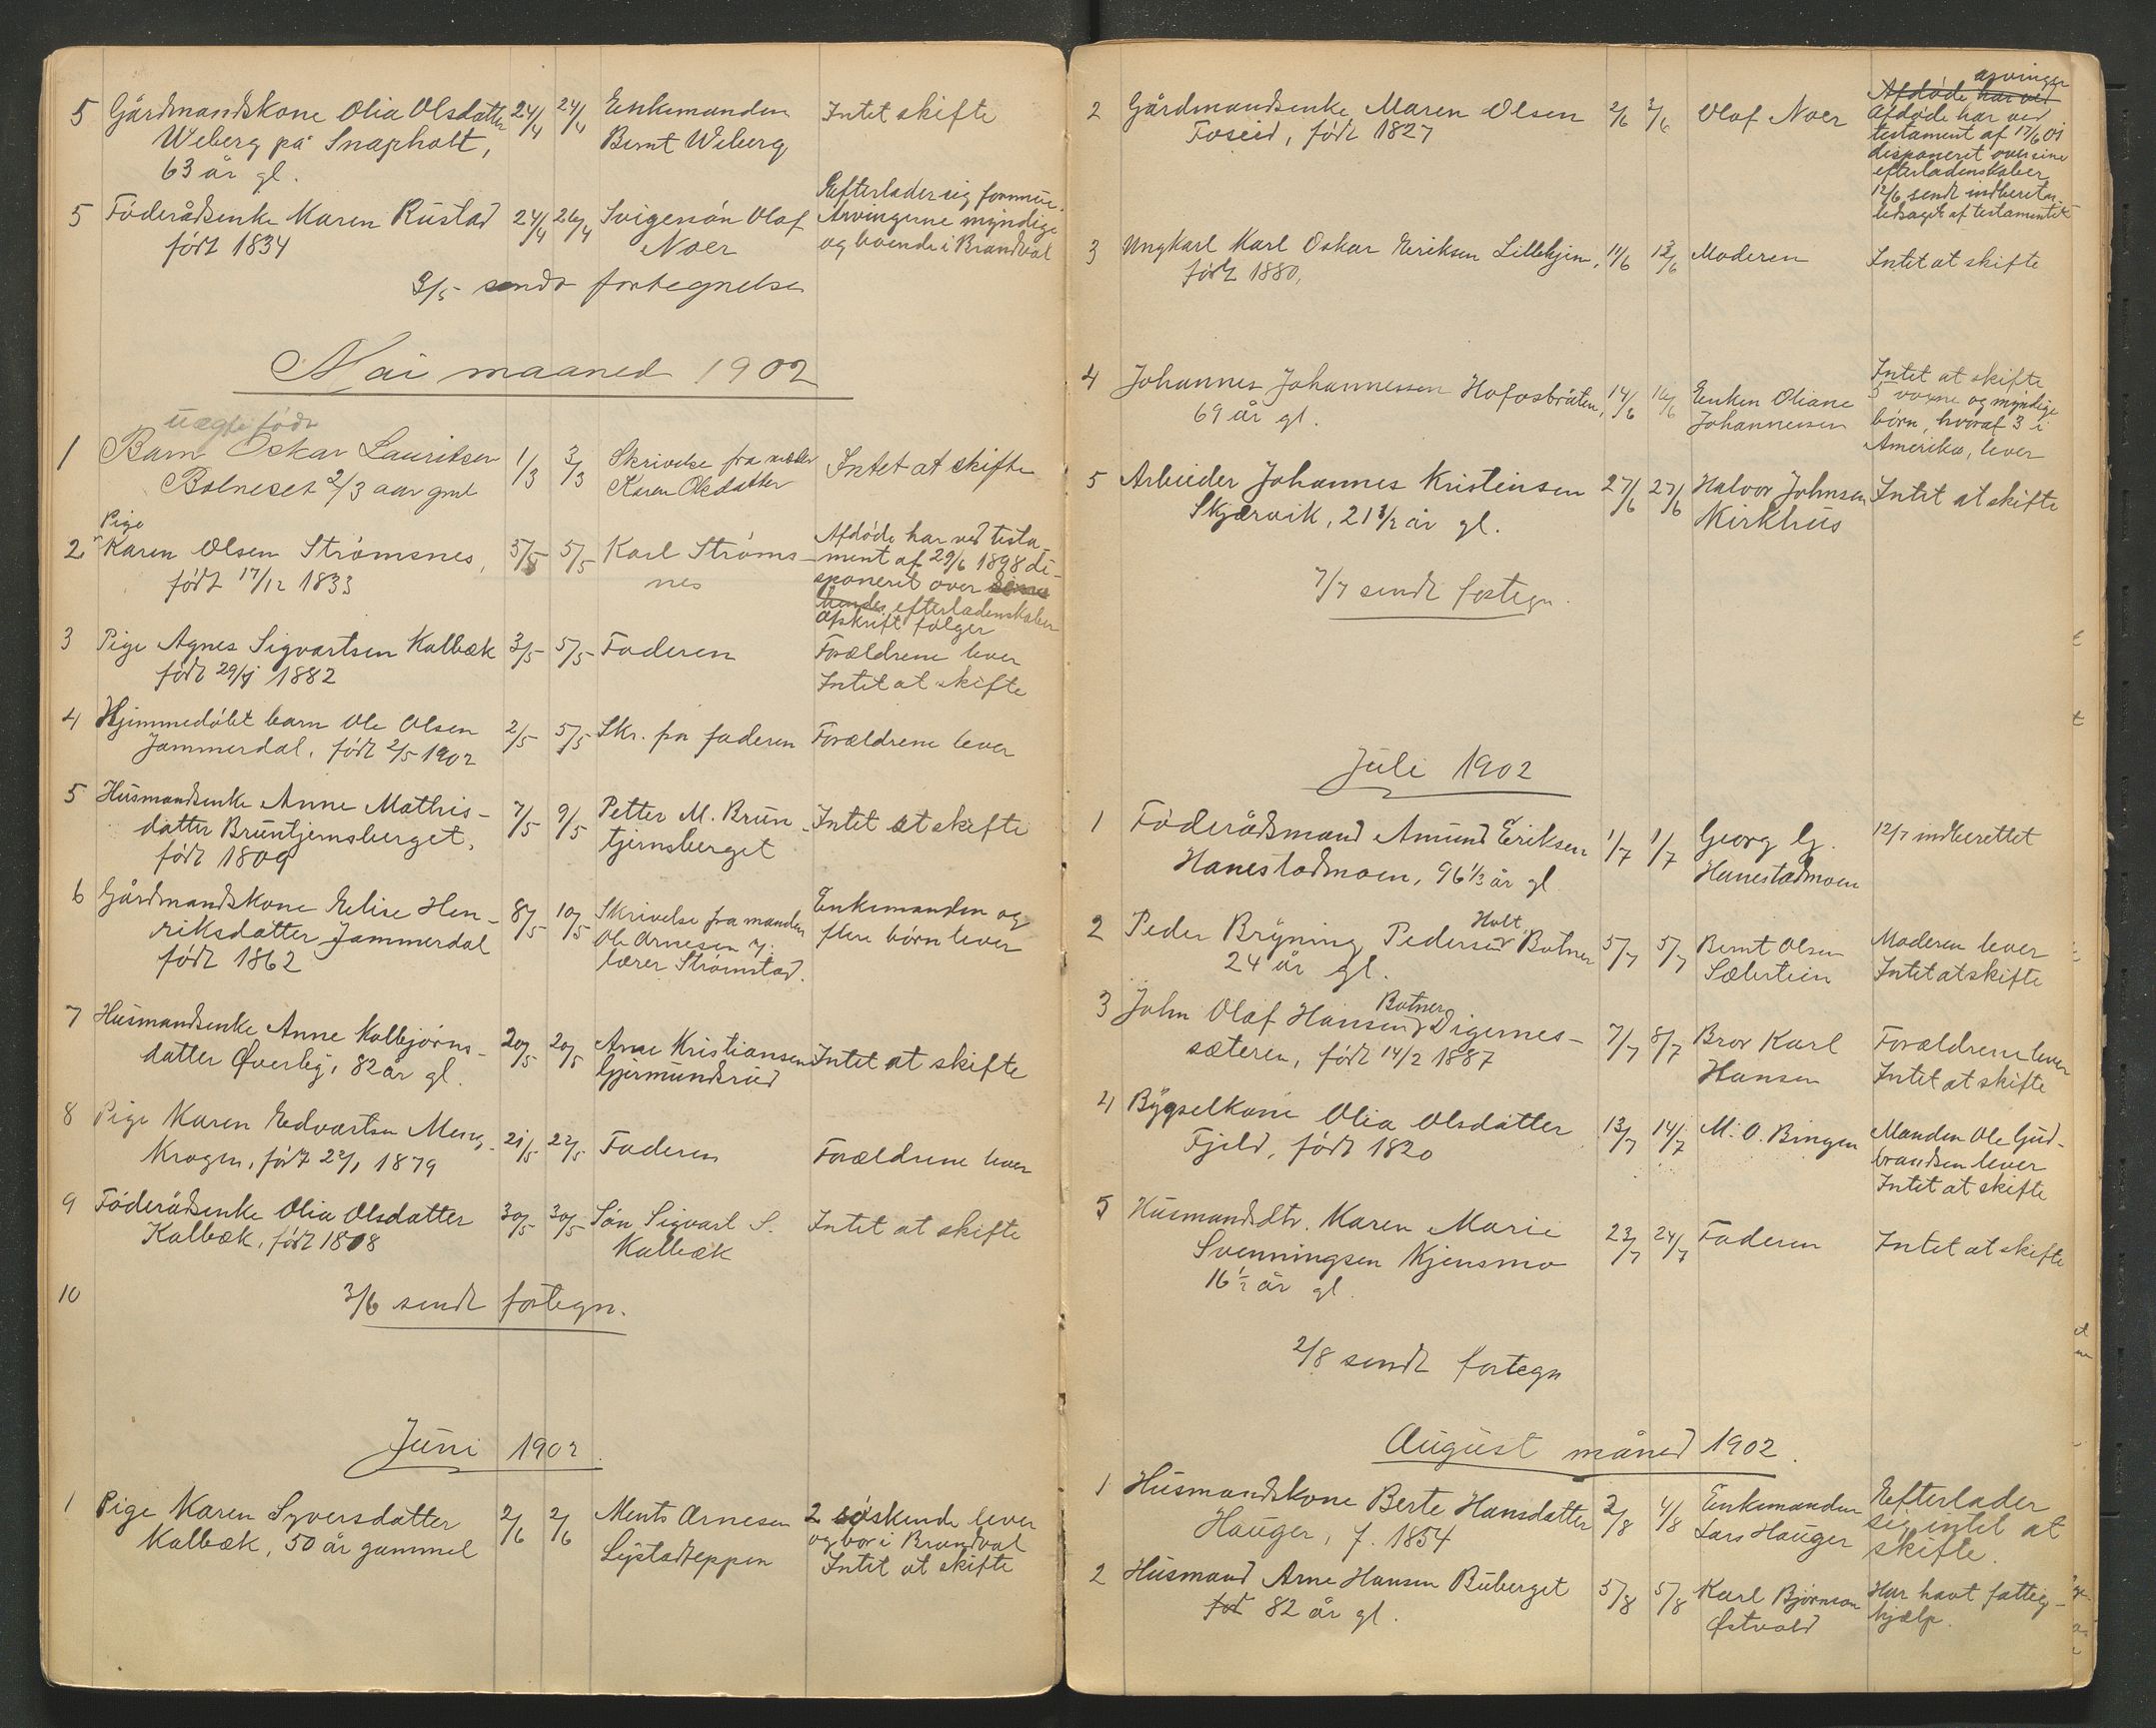 5 Gårdmandskone Olia Olsdatter 24/4 24/4 Enkemanden Intet skifte
Weberg på Snapholt, Bernt Weberg
63 år gl.
5 Föderådsenke Maren Rustad 24/4 26/4 Svigersön Olaf Efterlader sig formue.
født 1834 Noer Arvingerne myndige
og boende i Brandval
3/5 sendt fortegnelse
Mai maaned 1902
uægte født
1 Barn Oskar Lauritsen 1/3 3/3 Skrivelse fra moder Intet at skifte
Bolneset 2/3 aar gml Karen Olsdatter
Pige
2 Karen Olsen Strömsnes, 3/5 5/5 Karl Ströms- Afdöde har ved testa-
født 17/12 1833 nes ment af 29/6 1898 di-
sponeret over sine
hendes efterladenskaber
Afskrift følger
3 Pige Agnes Sigvartsen Kalbæk 3/5 5/5 Faderen Forældrene lever
født 29/4 1882 Intet at skifte
4 Hjemmedöbt barn Ole Olsen 2/5 5/5 Skr. fra faderen Forældrene lever
Jammerdal, født 2/5 1902
5 Husmandsenke Anne Mathis- 7/5 9/5 Petter M. Brun- Intet at skifte
datter Bruntjernsberget, tjernsberget
født 1809
6 Gårdmandskone Elise Hen- 8/5 10/5 Skrivelse fra manden Enkemanden og
riksdatter Jammerdal Ole Arnesen flere börn lever
født 1862 lærer Strömstad.
7 Husmandsenke Anne Kolbjørns- 20/5 20/5 Arne Kristiansen Intet at skifte
datter Øverby, 82 år gl. Gjermundsrud
8 Pige Karen Edvartsen Meng- 21/5 22/5 Faderen Forældrene lever
Krogen, født 22/1 1879
9 Föderådsenke Olia Olsdatter 30/5 30/5 Sön Sigvart S. Intet at skifte
Kalbæk, født 1808 Kalbæk
10 3/6 sendt fortegn.
Juni 1902.
1 Pige Karen Syversdatter 2/6 2/6 Ments Arnesen 2 søskende lever
Kalbæk, 50 år gammel Lystadeppen og bor i Brandval
Intet at skifte
arvinger
2 Gårdmandsenke Maren Olsen 2/6 3/6 Olaf Noer Afdöde har ved
Foseid, født 1827 Afdöde har ved
testament af 17/6 01
disponeret over sine
efterladenskaber
12/6 sendt indberetn.
ledsaget af testamentet
3 Ungkarl Karl Oskar Eriksen Lillehjem, 11/6 13/6 Moderen Intet at skifte
født 1880.
4 Johannes Johannessen Hofosbråten, 14/6 16/6 Enken Oliane Intet at skifte
69 år gl. Johannessen 5 voxne og myndige
börn, hvoraf 3 i
Amerika, lever
5 Arbeider Johannes Kristensen 27/6 27/6 Halvor Johnsen Intet at skifte
Skjærvik, 21 1/2 år gl. Kirkhus
7/7 sendt fortegn.
Juli 1902
1 Föderådsmand Amund Eriksen 1/7 1/7 Georg G. 12/7 indberettet
Hanestadmoen, 96 1/3 år gl Hanestadmoen
Holt
2 Peder Bryning Pedersen Botner 5/7 5/7 Bernt Olsen Moderen lever
24 år gl. Sæterteien Intet at skifte
Botner
3 John Olaf Hansen Digernes- 7/7 8/7 Bror Karl Forældrene lever
sæteren, født 14/2 1887 Hansen Intet at skifte
4 Bygselkone Olia Olsdatter 13/7 14/7 M. O. Bingen Manden Ole Gud-
Fjeld, født 1820 brandsen lever
Intet at skifte
5 Husmandsdtr. Karen Marie 23/7 24/7 Faderen Intet at skifte
Svenningsen Kjensmo
16 1/2 år gl.
2/8 sendt fortegn
August måned 1902.
1 Husmandskone Berte Hansdatter 3/8 4/8 Enkemanden Efterlader
Hauger, f. 1854 Lars Hauger sig intet at
skifte.
2 Husmand Arne Hansen Buberget 5/8 5/8 Karl Bjørnson Har havt fattig-
fød 82 år gl. Østvold hjælp.